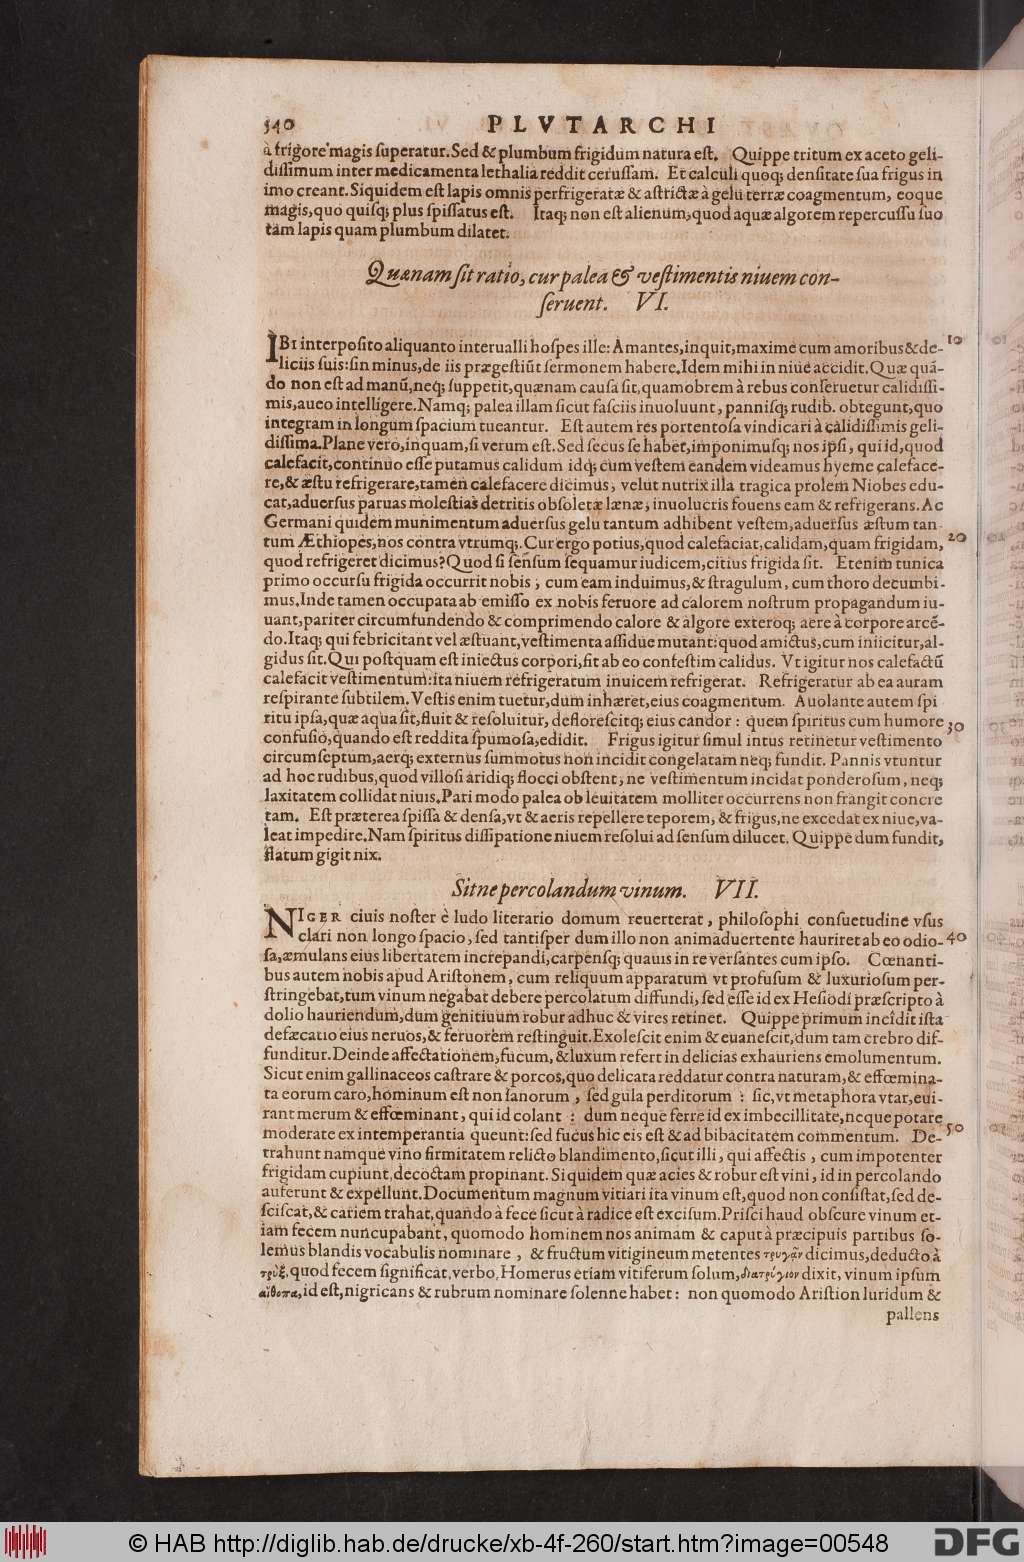 540 PLVTARCHI
à frigore magis ſuperatur. Sed & plumbum frigidum natura eſt. Quippe tritum ex aceto geli-
diſſimum inter medicamenta lethalia reddit ceruſſam. Et calculi quoq; denſitate ſua frigus in
imo creant. Siquidem eſt lapis omnis perfrigeratæ & aſtrictæ à gelu terræ coagmentum, eoque
magis, quo quiſq; plus ſpiſſatus eſt. Itaq; non eſt alienum, quod aquæ algorem repercuſſu ſuo
tàm lapis quam plumbum dilatet.
Quænam ſit ratio, cur palea & veſtimentis niuem con-
ſeruent. VI.
IBI interpoſito aliquanto interualli hoſpes ille: Amantes, inquit, maxime cum amoribus & de- 10
liciis ſuis: ſin minus, de iis prægeſtiūt ſermonem habere. Idem mihi in niue accidit. Quæ quā-
do non eſt ad manū, neq; ſuppetit, quænam cauſa ſit, quamobrem à rebus conſeruetur calidiſſi-
mis, aueo intelligere. Namq; palea illam ſicut faſciis inuoluunt, panniſq; rudib. obtegunt, quo
integram in longum ſpacium tueantur. Eſt autem res portentoſa vindicari à calidiſſimis geli-
diſſima. Plane vero, inquam, ſi verum eſt. Sed ſecus ſe habet, imponimuſq; nos ipſi, qui id, quod
calefacit, continuo eſſe putamus calidum idq; cum veſtem eandem videamus hyeme caleface-
re, & æſtu refrigerare, tamen calefacere dicimus, velut nutrix illa tragica prolem Niobes edu-
cat, aduerſus paruas moleſtias detritis obſoletæ lænæ, inuolucris fouens eam & refrigerans. Ac
Germani quidem munimentum aduerſus gelu tantum adhibent veſtem, aduerſus æſtum tan-
tum Æthiopes, nos contra vtrumq;. Cur ergo potius, quod calefaciat, calidam, quam frigidam, 20
quod refrigeret dicimus? Quod ſi ſenſum ſequamur iudicem, citius frigida ſit. Etenim tunica
primo occurſu frigida occurrit nobis, cum eam induimus, & ſtragulum, cum thoro decumbi-
mus. Inde tamen occupata ab emiſſo ex nobis feruore ad calorem noſtrum propagandum iu-
uant, pariter circumfundendo & comprimendo calore & algore exteroq; aere à corpore arcē-
do. Itaq; qui febricitant vel æſtuant, veſtimenta aſſidue mutant: quod amictus, cum iniicitur, al-
gidus ſit. Qui poſtquam eſt iniectus corpori, fit ab eo confeſtim calidus. Vt igitur nos calefactū
calefacit veſtimentum: ita niuem refrigeratum inuicem refrigerat. Refrigeratur ab ea auram
reſpirante ſubtilem. Veſtis enim tuetur, dum inhæret, eius coagmentum. Auolante autem ſpi
ritu ipſa, quæ aqua ſit, fluit & reſoluitur, defloreſcitq; eius candor: quem ſpiritus cum humore 30
confuſio, quando eſt reddita ſpumoſa, edidit. Frigus igitur ſimul intus retinetur veſtimento
circumſeptum, aerq; externus ſummotus non incidit congelatam neq; fundit. Pannis vtuntur
ad hoc rudibus, quod villoſi aridiq; flocci obſtent, ne veſtimentum incidat ponderoſum, neq;
laxitatem collidat niuis. Pari modo palea ob leuitatem molliter occurrens non frangit concre
tam. Eſt præterea ſpiſſa & denſa, vt & aeris repellere teporem, & frigus, ne excedat ex niue, va-
leat impedire. Nam ſpiritus diſſipatione niuem reſolui ad ſenſum dilucet. Quippe dum fundit,
flatum gigit nix.
Sitne percolandum vinum. VII.
NIGER ciuis noſter è ludo literario domum reuerterat, philoſophi conſuetudine vſus
clari non longo ſpacio, ſed tantiſper dum illo non animaduertente hauriret ab eo odio- 40
ſa, æmulans eius libertatem increpandi, carpenſq; quauis in re verſantes cum ipſo. Cœnanti-
bus autem nobis apud Ariſtonem, cum reliquum apparatum vt profuſum & luxurioſum per-
ſtringebat, tum vinum negabat debere percolatum diffundi, ſed eſſe id ex Heſiodi præſcripto à
dolio hauriendum, dum genitiuum robur adhuc & vires retinet. Quippe primum incîdit iſta
defæcatio eius neruos, & feruorem reſtinguit. Exoleſcit enim & euaneſcit, dum tam crebro dif-
funditur. Deinde affectationem, fucum, & luxum refert in delicias exhauriens emolumentum.
Sicut enim gallinaceos caſtrare & porcos, quo delicata reddatur contra naturam, & effœmina-
ta eorum caro, hominum eſt non ſanorum, ſed gula perditorum: ſic, vt metaphora vtar, eui-
rant merum & effœminant, qui id colant: dum neque ferre id ex imbecillitate, neque potare
moderate ex intemperantia queunt: ſed fucus hic eis eſt & ad bibacitatem commentum. De- 50
trahunt namque vino firmitatem relicto blandimento, ſicut illi, qui affectis, cum impotenter
frigidam cupiunt, decoctam propinant. Siquidem quæ acies & robur eſt vini, id in percolando
auferunt & expellunt. Documentum magnum vitiari ita vinum eſt, quod non conſiſtat, ſed de-
ſciſcat, & cariem trahat, quando à fece ſicut à radice eſt exciſum. Priſci haud obſcure vinum et-
iam fecem nuncupabant, quomodo hominem nos animam & caput à præcipuis partibus ſo-
lemus blandis vocabulis nominare, & fructum vitigineum metentes τρυγᾶν dicimus, deducto à
τρὺξ, quod fecem ſignificat, verbo. Homerus etiam vitiferum ſolum, διατρύγιον dixit, vinum ipſum
αἴθοπα, id eſt, nigricans & rubrum nominare ſolenne habet: non quomodo Ariſtion luridum &
pallens
© HAB http://diglib.hab.de/drucke/xb-4f-260/start.htm?image=00548 DFG